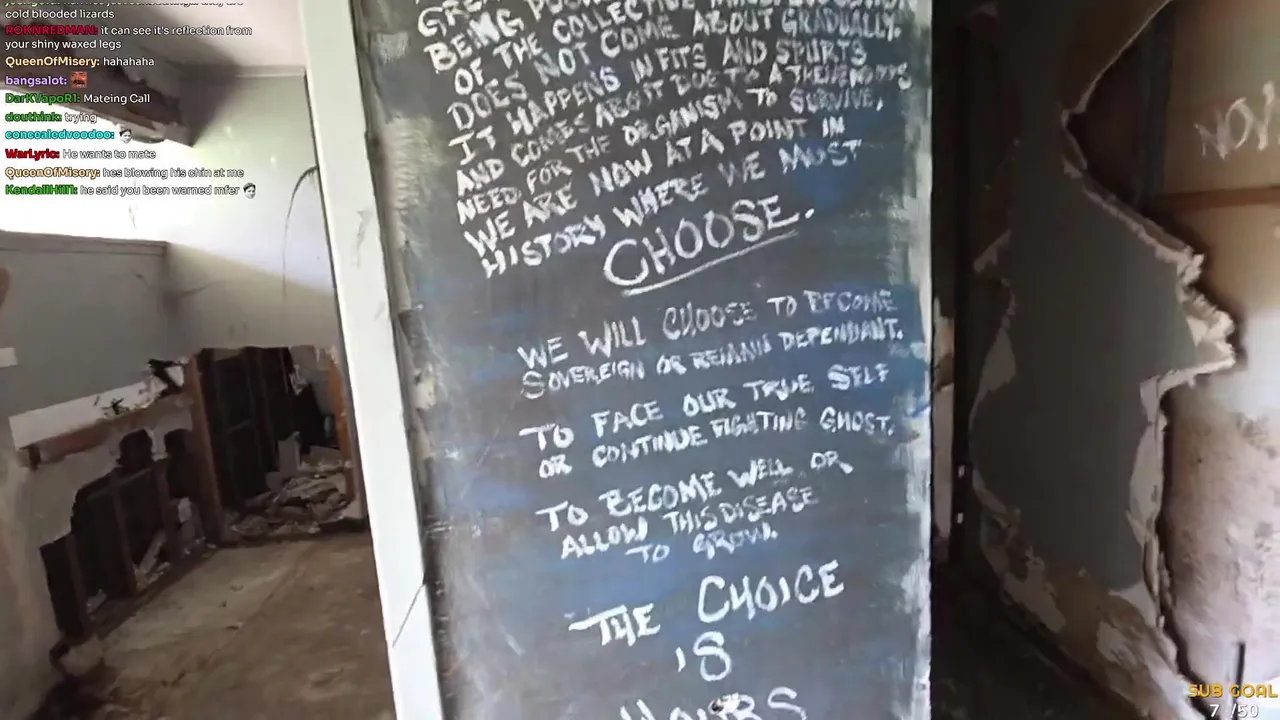 cold blooded lizards
ROKNREDMAN: it can see it's reflection from
your shiny waxed legs
QueenOfMisery: hahahaha
bangsalot:
DarKVapoR1: Mateing Call
douthink: trying
concealedvoodoo:
WarLyric: He wants to mate
QueenOfMisery: hes blowing his chin at me
KendallHill1: he said you been warned mfer
BEING
OF THE COLLECTIVE
DOES NOT COME ABOUT GRADUALLY.
IT HAPPENS IN FITS AND SPURTS
AND COMES ABOUT DUE TO A
NEED FOR THE ORGANISM TO SURVIVE.
WE ARE NOW AT A POINT IN
HISTORY WHERE WE MUST
CHOOSE.
WE WILL CHOOSE TO BECOME
SOVEREIGN OR REMAIN DEPENDANT.
TO FACE OUR TRUE SELF
OR CONTINUE FIGHTING GHOST.
TO BECOME WELL OR
ALLOW THIS DISEASE
TO GROW.
THE CHOICE
IS
YOURS
NOV
SUB GOAL
7 /50